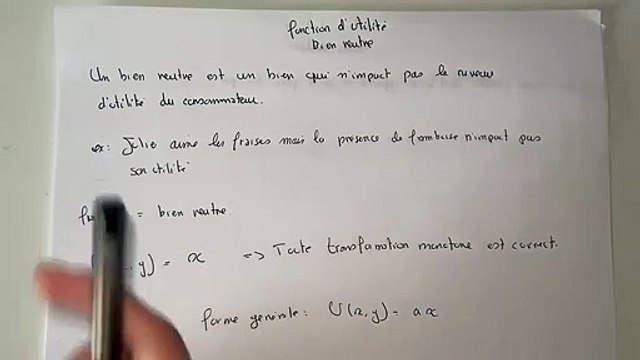 fonction d'utilité
bien neutre
Un bien neutre est un bien qui n'impact pas le niveau
d'utilité du consommateur.
ex: Julie aime les fraises mais la présence de framboise n'impact pas
son utilité
= bien neutre
y) = x => Toute transformation monotone est correct.
forme générale: U(x,y) = ax